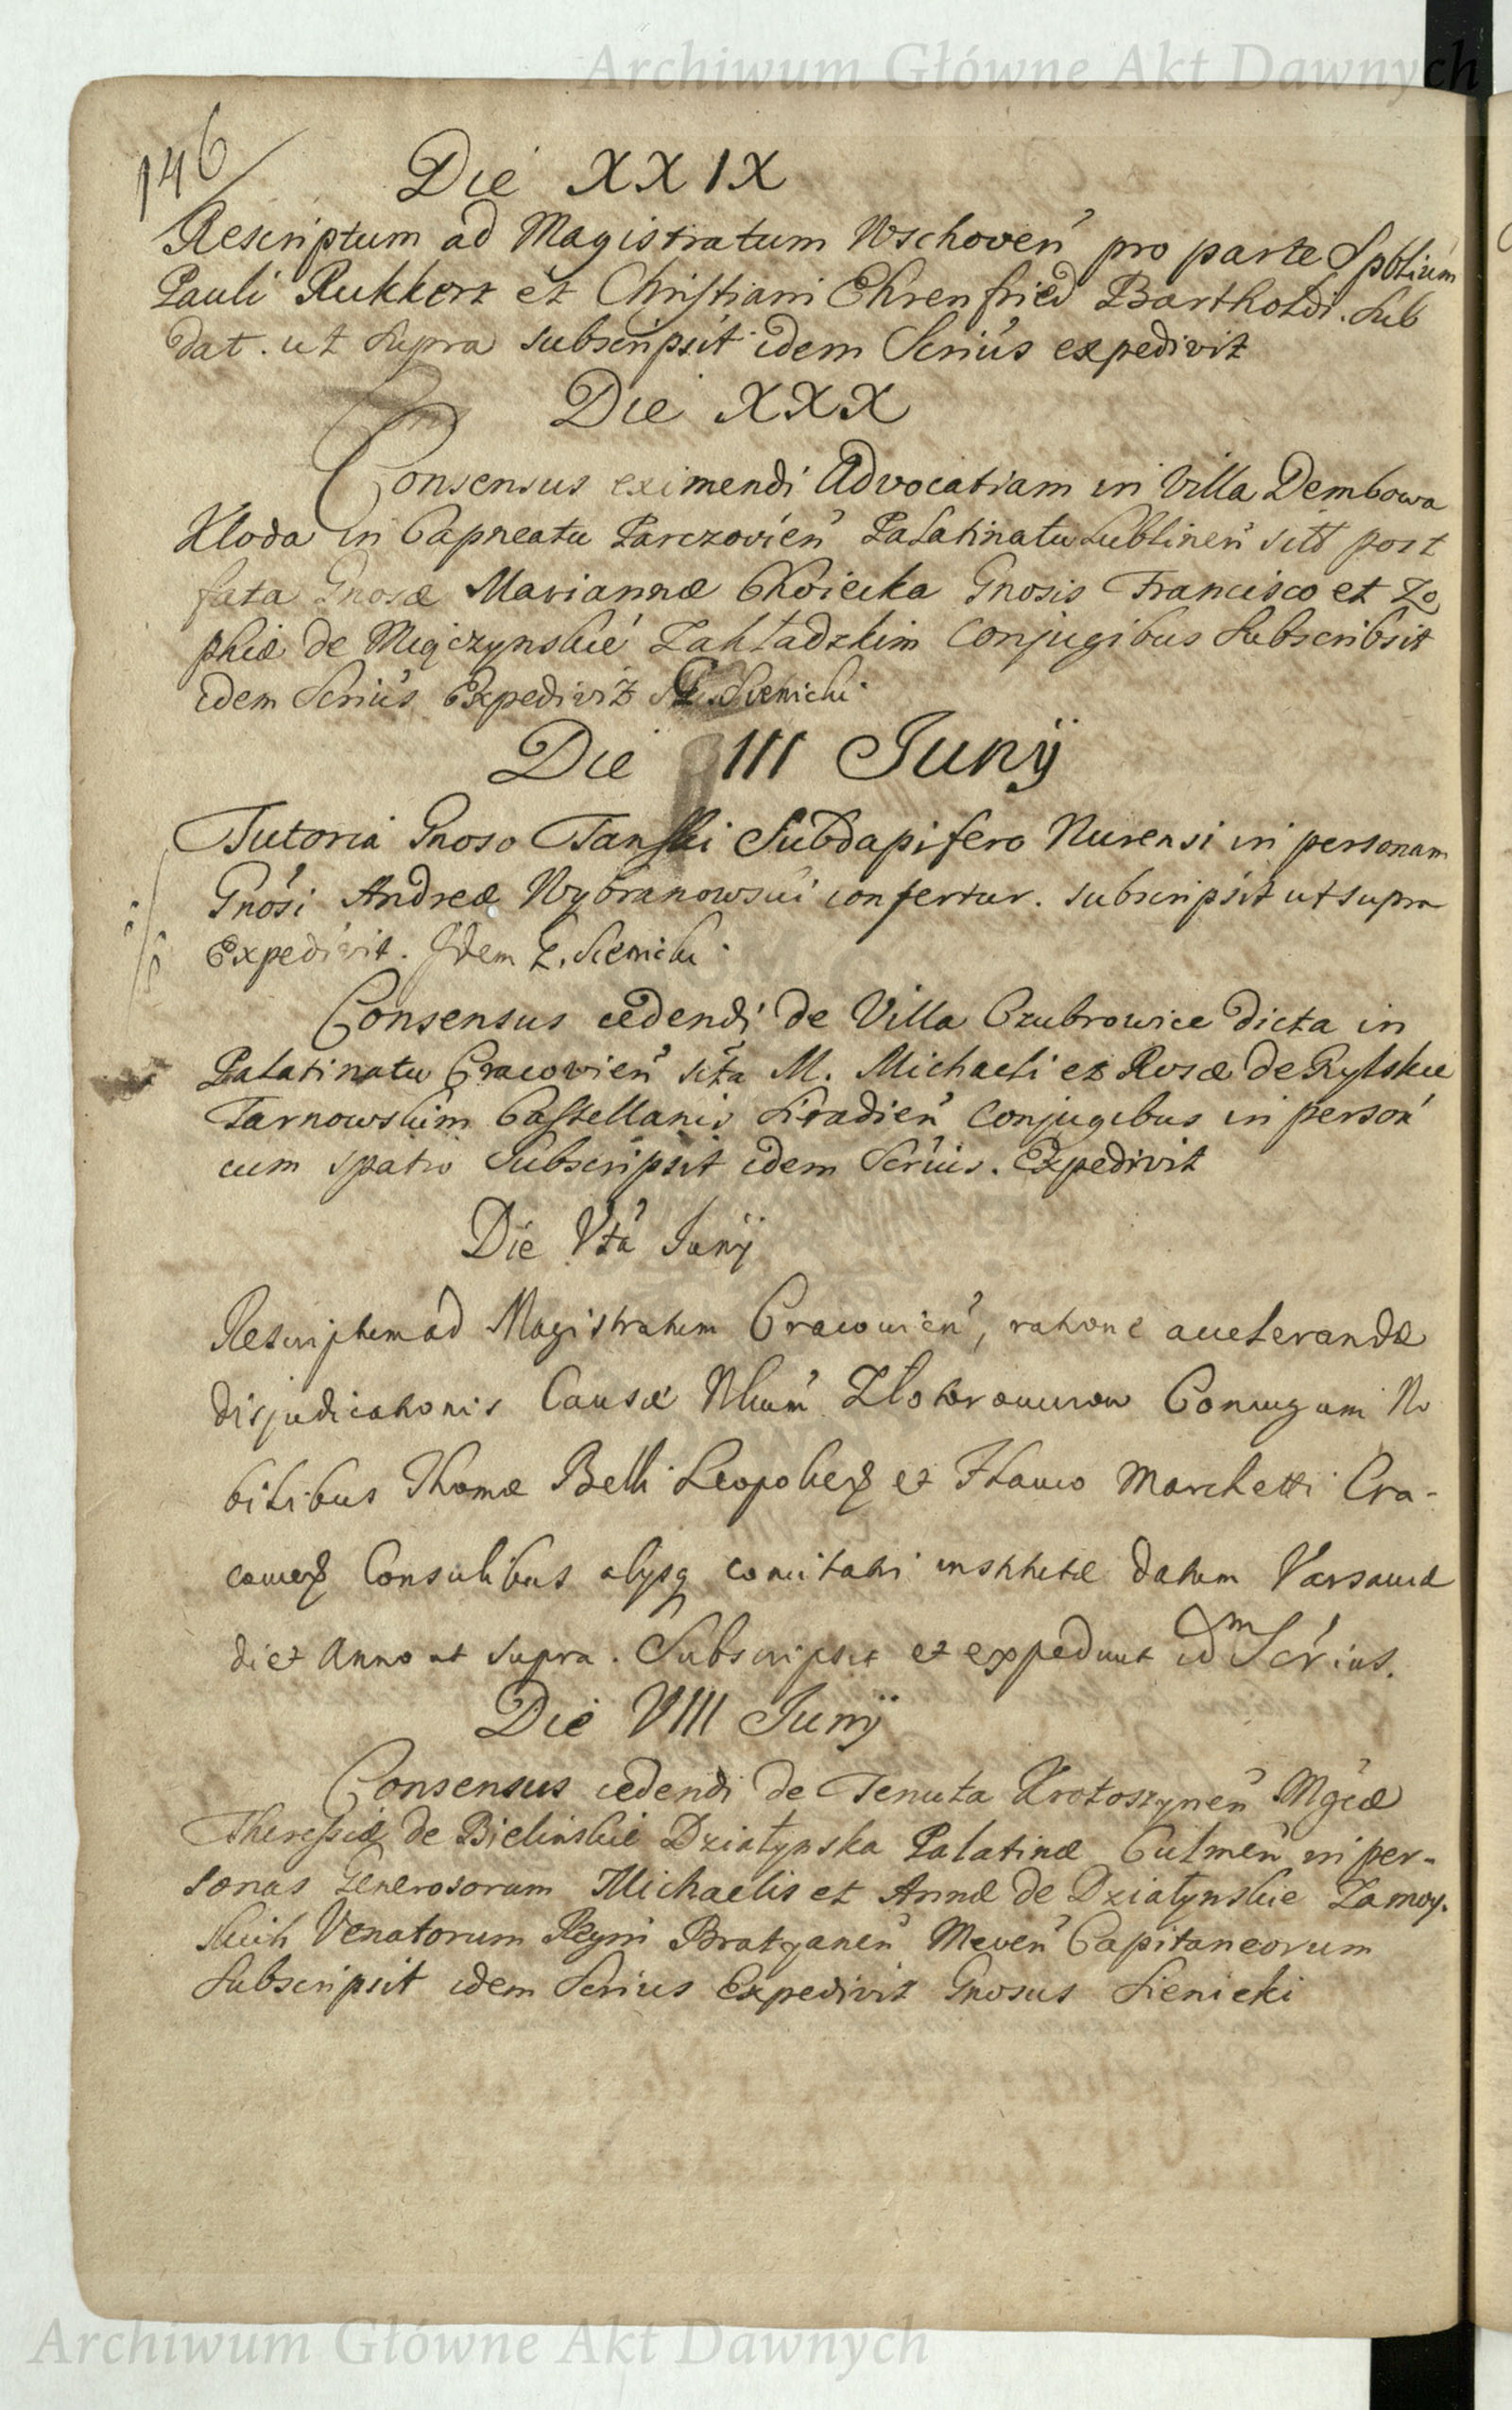 Archiwum Główne Akt Dawnych
146
Die XXIX
Rescriptum ad Magistratum Wschoveń pro parte Spbtium
Pauli Rukkert et Christiani Ehrenfried Bartholdi. Sub
dat. ut supra subscripsit idem Scrius expedivit
Die XXX
Consensus eximendi Advocatiam in Villa Dembowa
Kloda in Capneatu Parczovień Palatinatu Lublineń sitt post
fata Gnosæ Mariannæ Choiecka Gnosis Francisco et Zo
phiæ de Miączynskie Zakładzkim Conjugibus Subscribsit
idem Scrius Expedivit Sienicki
Die III Junÿ
Tutoria Gnoso Tanski Subdapifero Nurensi in personam
Gnosi Andreæ Wybranowski confertur. subscripsit ut supra
Expedivit. Idem Sienicki
Consensus cedendi de Villa Czubrowice dicta in
Palatinatu Cracovień sita M. Michaeli et Rosæ de Rylskie
Tarnowskim Castellanis Siradień Conjugibus in persoń
cum spatio Subscripsit idem Scrius. Expedivit
Die Vta Junÿ
Rescriptum ad Magistratum Cracovień, ratione accelerandæ
disjudicationis Causæ Conjugum No
bilibus Thomæ Belli et Marchetti Cra-
Consulibus alysq comitati institutæ datum Varsaviæ
die et Anno ut supra. Subscripsit et expedivit idm Scrius.
Die VIII Junÿ
Consensus cedendi de Tenuta Krotoszyneń Mgcæ
Theressiæ de Bielinskie Działynska Palatinæ Culmeń in per-
sonas Generosorum Michaelis et Annæ de Działynskie Zamoy-
skich Venatorum Regni Bratyaneń Meveń Capitaneorum
Subscripsit idem Scrius Expedivit Gnosus Sienicki
Archiwum Główne Akt Dawnych